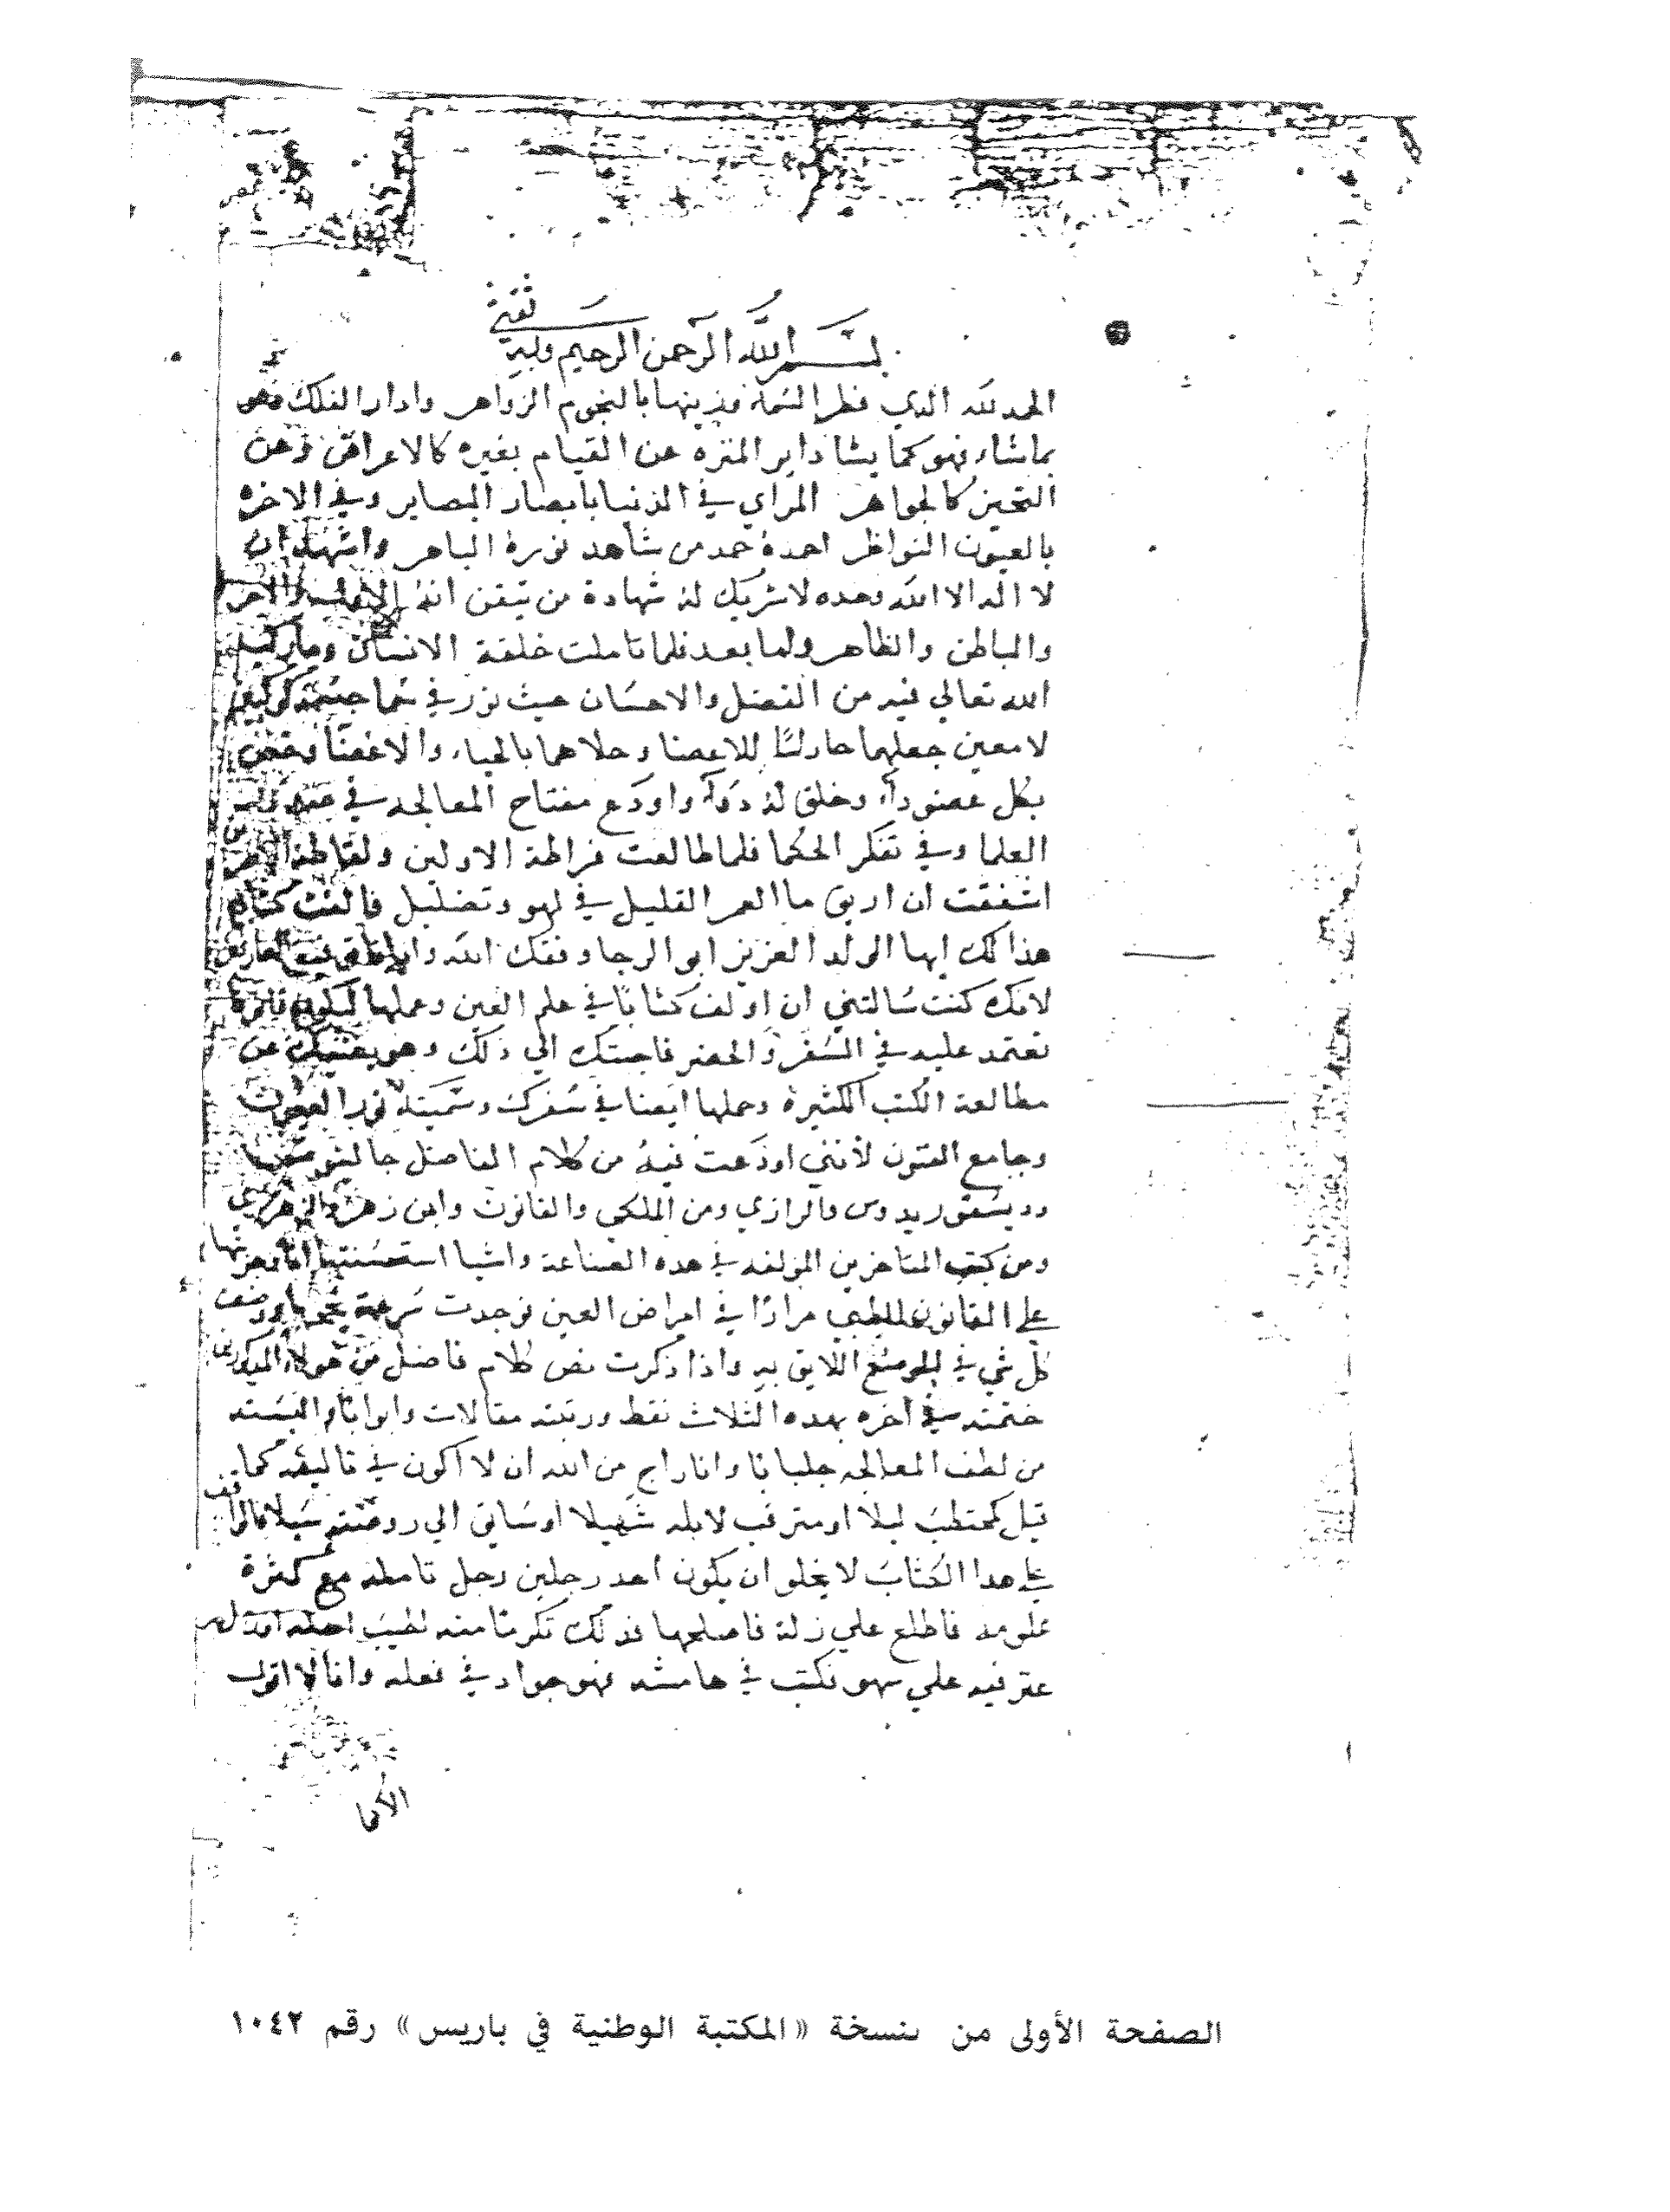 بسم الله الرحمن الرحيم وبه ثقتي
الحمد لله الذي فطر السماء وزينها بالنجوم الزواهر وادار الفلك فهو
بماشاء فهو كما يشا داير المنزه عن القيام بغيره كالاعراض وعن
التحيز كالجواهر المراي في الدنيا بابصار البصاير وفي الاخره
بالعيون النواظر احمدهُ حمد من شاهد نورهُ الباهر واشهد ان
لا اله الا الله وحده لا شريك لهُ شهادة من تيقن انهُ الاول والاخر
والباطن والظاهر ولما بعد فلما تاملت خلقة الانسان وما ركب
الله تعالي فيه من الفضل والاحسان حيث نور في سما جسمه كوكبين
لامعين جعلهما حارسًا للاعضا وحلاهما بالحياء والاغضا وخص
بكل عضو داء وخلق لهُ دواء واودع مفتاح المعالجه في
العلما وفي تفكر الحكما فلما طالعت قراطة الاولين ولقاطة
اشفقت ان اريق ما العمر القليل في لهو وتضليل فالفت كتابي
هذا لك ايها الولد العزيز ابو الرجا وفقك الله
لانك كنت سالتني ان اولف كتابًا في علم العين وعملها ليكون
تعتمد عليه في السفر والحضر فاجبتك الي ذلك وهو يغنيك عن
مطالعة الكتب الكثيرة وحملها ايضا في سفرك وسميته نور العيون
وجامع الفنون لأنني اودعت فيهُ من كلام الفاضل جالينوس
وديسقوريدوس والرازي ومن الملكي والقانون وابن زهر والزهراوي
ومن كتب المتاخرين المولفه في هده الصناعة واشيا استحسنتها
علي القانون الطبي مرارًا في امراض العين فوجدت سرعة
كل شي في الموضع اللايق به واذا ذكرت نص كلام فاضل من هولاء المذكورين
ختمته في آخره بهده الثلاث نقط ورتبته مقالات وابوابًا والبسته
من لطف المعالجه جلبابًا وانا راج من الله ان لا أكون في تاليفه كما
قيل كمحتطب ليلا او مترقب لابله سُهيلا او ساق الي روضته سيلا فالواقف
علي هدا الكتاب لا يخلو ان يكون احد رجلين رجل تامله مع كثرة
علومه فاطلع علي زلة فاصلحها فذلك تكرمًا منه لطيب اصله
عثر فيه علي سهو نكتب في هامشه فهو جواد في فعله وانا لا اقول
الاكما
الصفحة الأولى من نسخة «المكتبة الوطنية في باريس» رقم ١٠٤٢